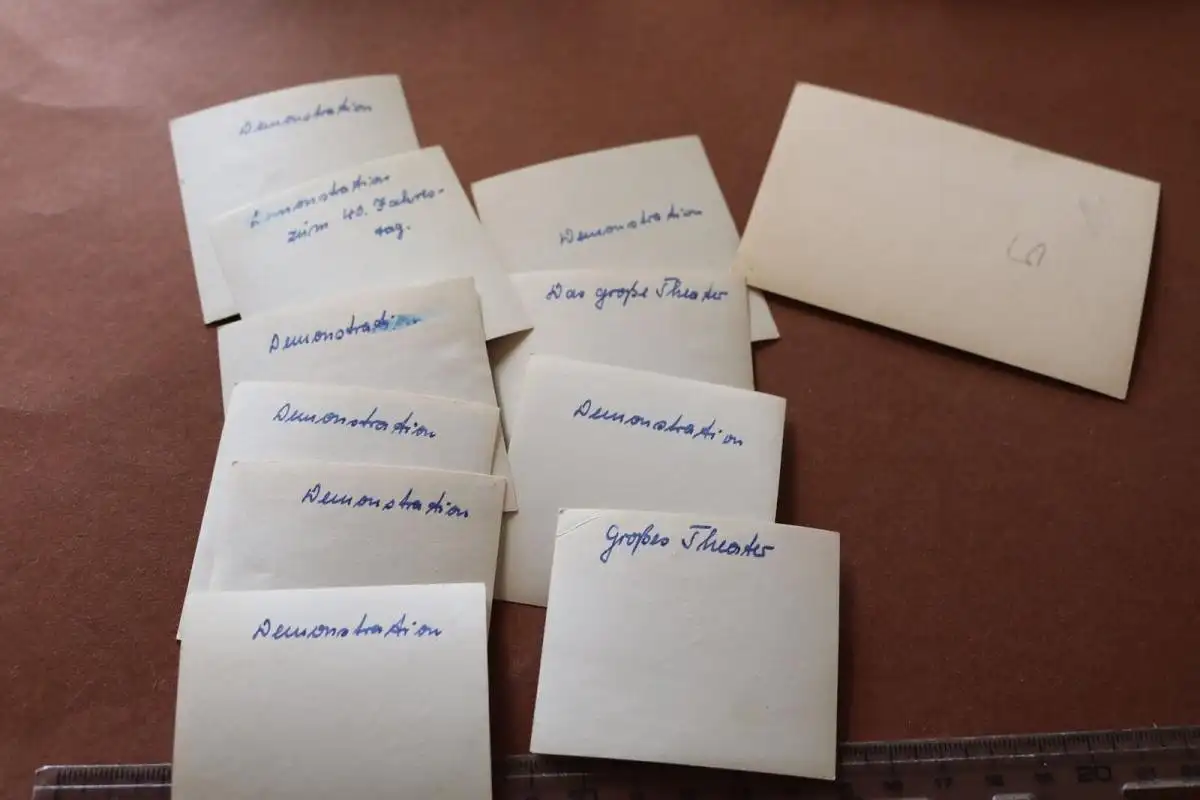 Demonstration
Demonstration
zum 40. Jahres-
tag.
Demonstration
Demonstration
Demonstration
Demonstration
Demonstration
Das große Theater
Demonstration
Großes Theater
5
17
18
19
20